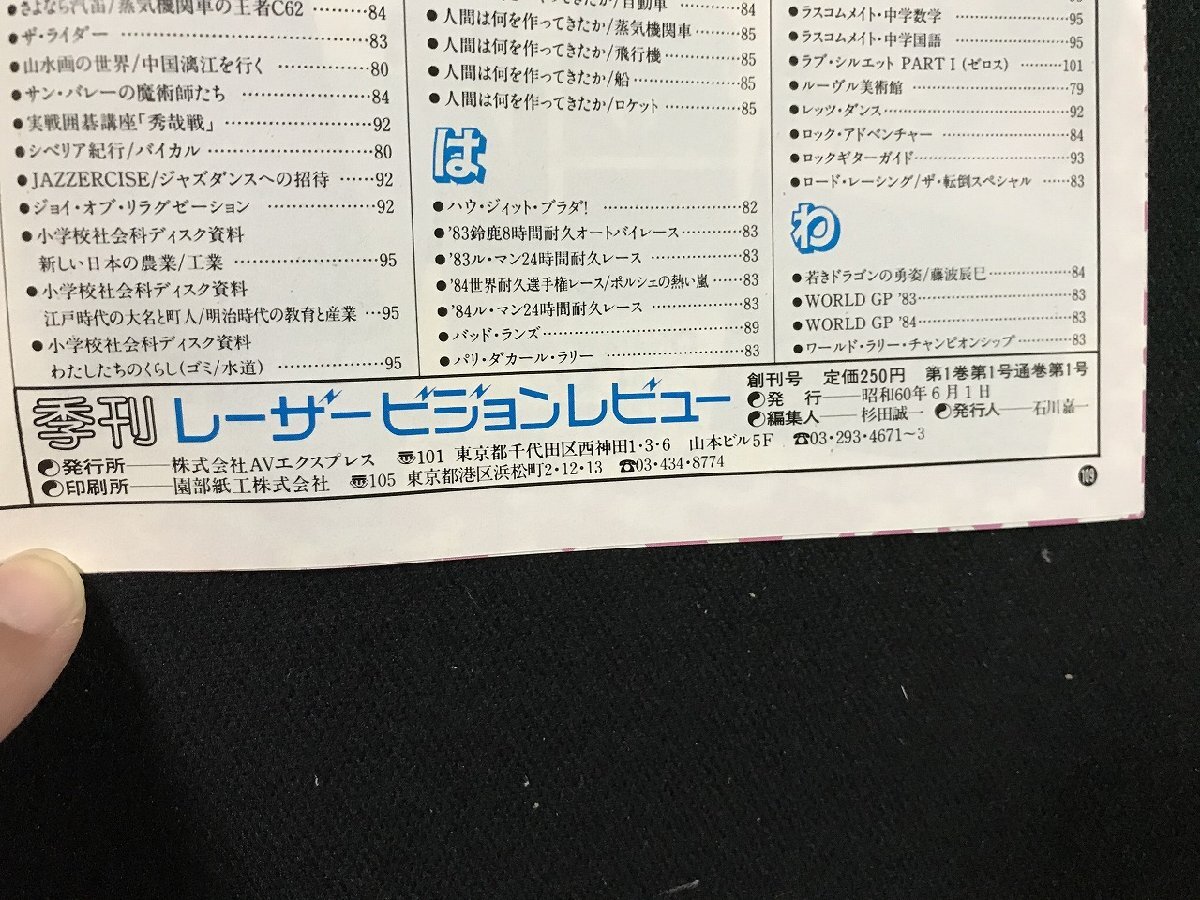 ●さよなら汽笛/蒸気機関車の王者C62………84
●ザ・ライダー………83
●山水画の世界/中国漓江を行く………80
●サン・バレーの魔術師たち………84
●実戦囲碁講座「秀哉戦」………92
●シベリア紀行/バイカル………80
●JAZZERCISE/ジャズダンスへの招待……92
●ジョイ・オブ・リラグゼーション………92
●小学校社会科ディスク資料
新しい日本の農業/工業………95
●小学校社会科ディスク資料
江戸時代の大名と町人/明治時代の教育と産業…95
●小学校社会科ディスク資料
わたしたちのくらし(ゴミ/水道)………95
/自動車………84
●人間は何を作ってきたか/蒸気機関車……85
●人間は何を作ってきたか/飛行機………85
●人間は何を作ってきたか/船………85
●人間は何を作ってきたか/ロケット………85
は
●ハウ・ジィット・ブラダ!………82
●'83鈴鹿8時間耐久オートバイレース………83
●'83ル・マン24時間耐久レース………83
●'84世界耐久選手権レース/ポルシェの熱い嵐……83
●'84ル・マン24時間耐久レース………83
●バッド・ランズ………89
●パリ・ダカール・ラリー………83
●ラスコムメイト・中学数学………95
●ラスコムメイト・中学国語………95
●ラブ・シルエット PARTⅠ(ゼロス)………101
●ルーヴル美術館………79
●レッツ・ダンス………92
●ロック・アドベンチャー………84
●ロックギターガイド………93
●ロード・レーシング/ザ・転倒スペシャル……83
わ
●若きドラゴンの勇姿/藤波辰巳………84
●WORLD GP '83………83
●WORLD GP '84………83
●ワールド・ラリー・チャンピオンシップ………83
季刊 レーザービジョンレビュー
創刊号 定価250円 第1巻第1号通巻第1号
発行――昭和60年6月1日
編集人――杉田誠一 発行人――石川嘉一
発行所――株式会社AVエクスプレス 〒101 東京都千代田区西神田1・3・6 山本ビル5F ☎03・293・4671~3
印刷所――園部紙工株式会社 〒105 東京都港区浜松町2・12・13 ☎03・434・8774
109